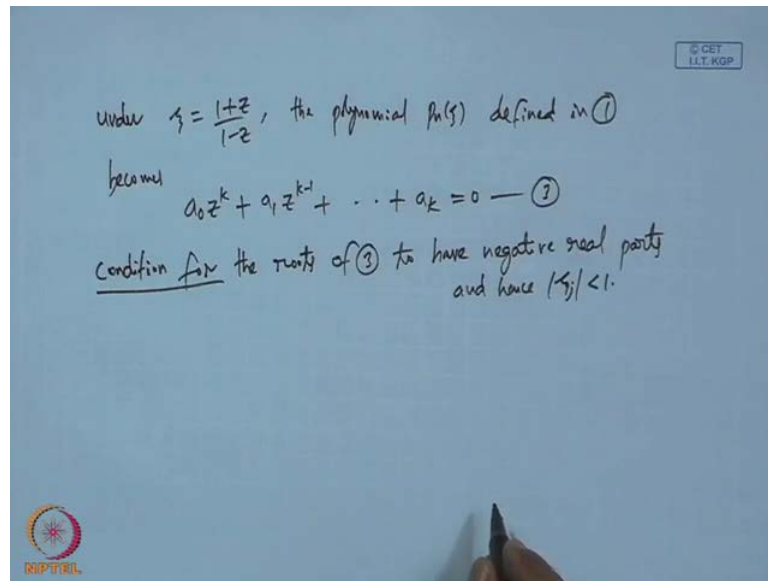 © CET
I.I.T. KGP
under ξ = (1+z)/(1-z), the plynomial pn(ξ) defined in ①
becomes
a₀z^k + a₁z^{k-1} + . . + a_k = 0 — ③
condition for the roots of ③ to have negative real parts
and hence |ξj| < 1.
NPTEL